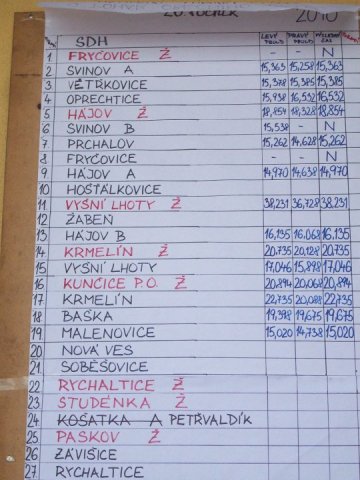 20. ROČNÍK 2010
SDH LEVÝ PROUD PRAVÝ PROUD VÝSLEDNÝ ČAS
1 FRYČOVICE Ž - - N
2 SVINOV A 15,363 15,258 15,363
3 VĚTŘKOVICE 15,378 15,385 15,385
4 OPRECHTICE 15,938 16,532 16,532
5 HÁJOV Ž 18,854 18,328 18,854
6 SVINOV B 15,538 - N
7 PRCHALOV 15,262 14,628 15,262
8 FRYČOVICE - - N
9 HÁJOV A 14,970 14,638 14,970
10 HOŠŤÁLKOVICE
11 VYŠNÍ LHOTY Ž 38,231 36,728 38,231
12 ŽABEŇ
13 HÁJOV B 16,135 16,068 16,135
14 KRMELÍN Ž 20,735 20,128 20,735
15 VYŠNÍ LHOTY 17,046 15,898 17,046
16 KUNČICE P.O. Ž 20,894 20,068 20,894
17 KRMELÍN 22,735 20,088 22,735
18 BAŠKA 19,398 19,675 19,675
19 MALENOVICE 15,020 14,738 15,020
20 NOVÁ VES
21 SOBĚŠOVICE
22 RYCHALTICE Ž
23 STUDÉNKA Ž
24 KOŠATKA A PETŘVALDÍK
25 PASKOV Ž
26 ZÁVIŠICE
27 RYCHALTICE